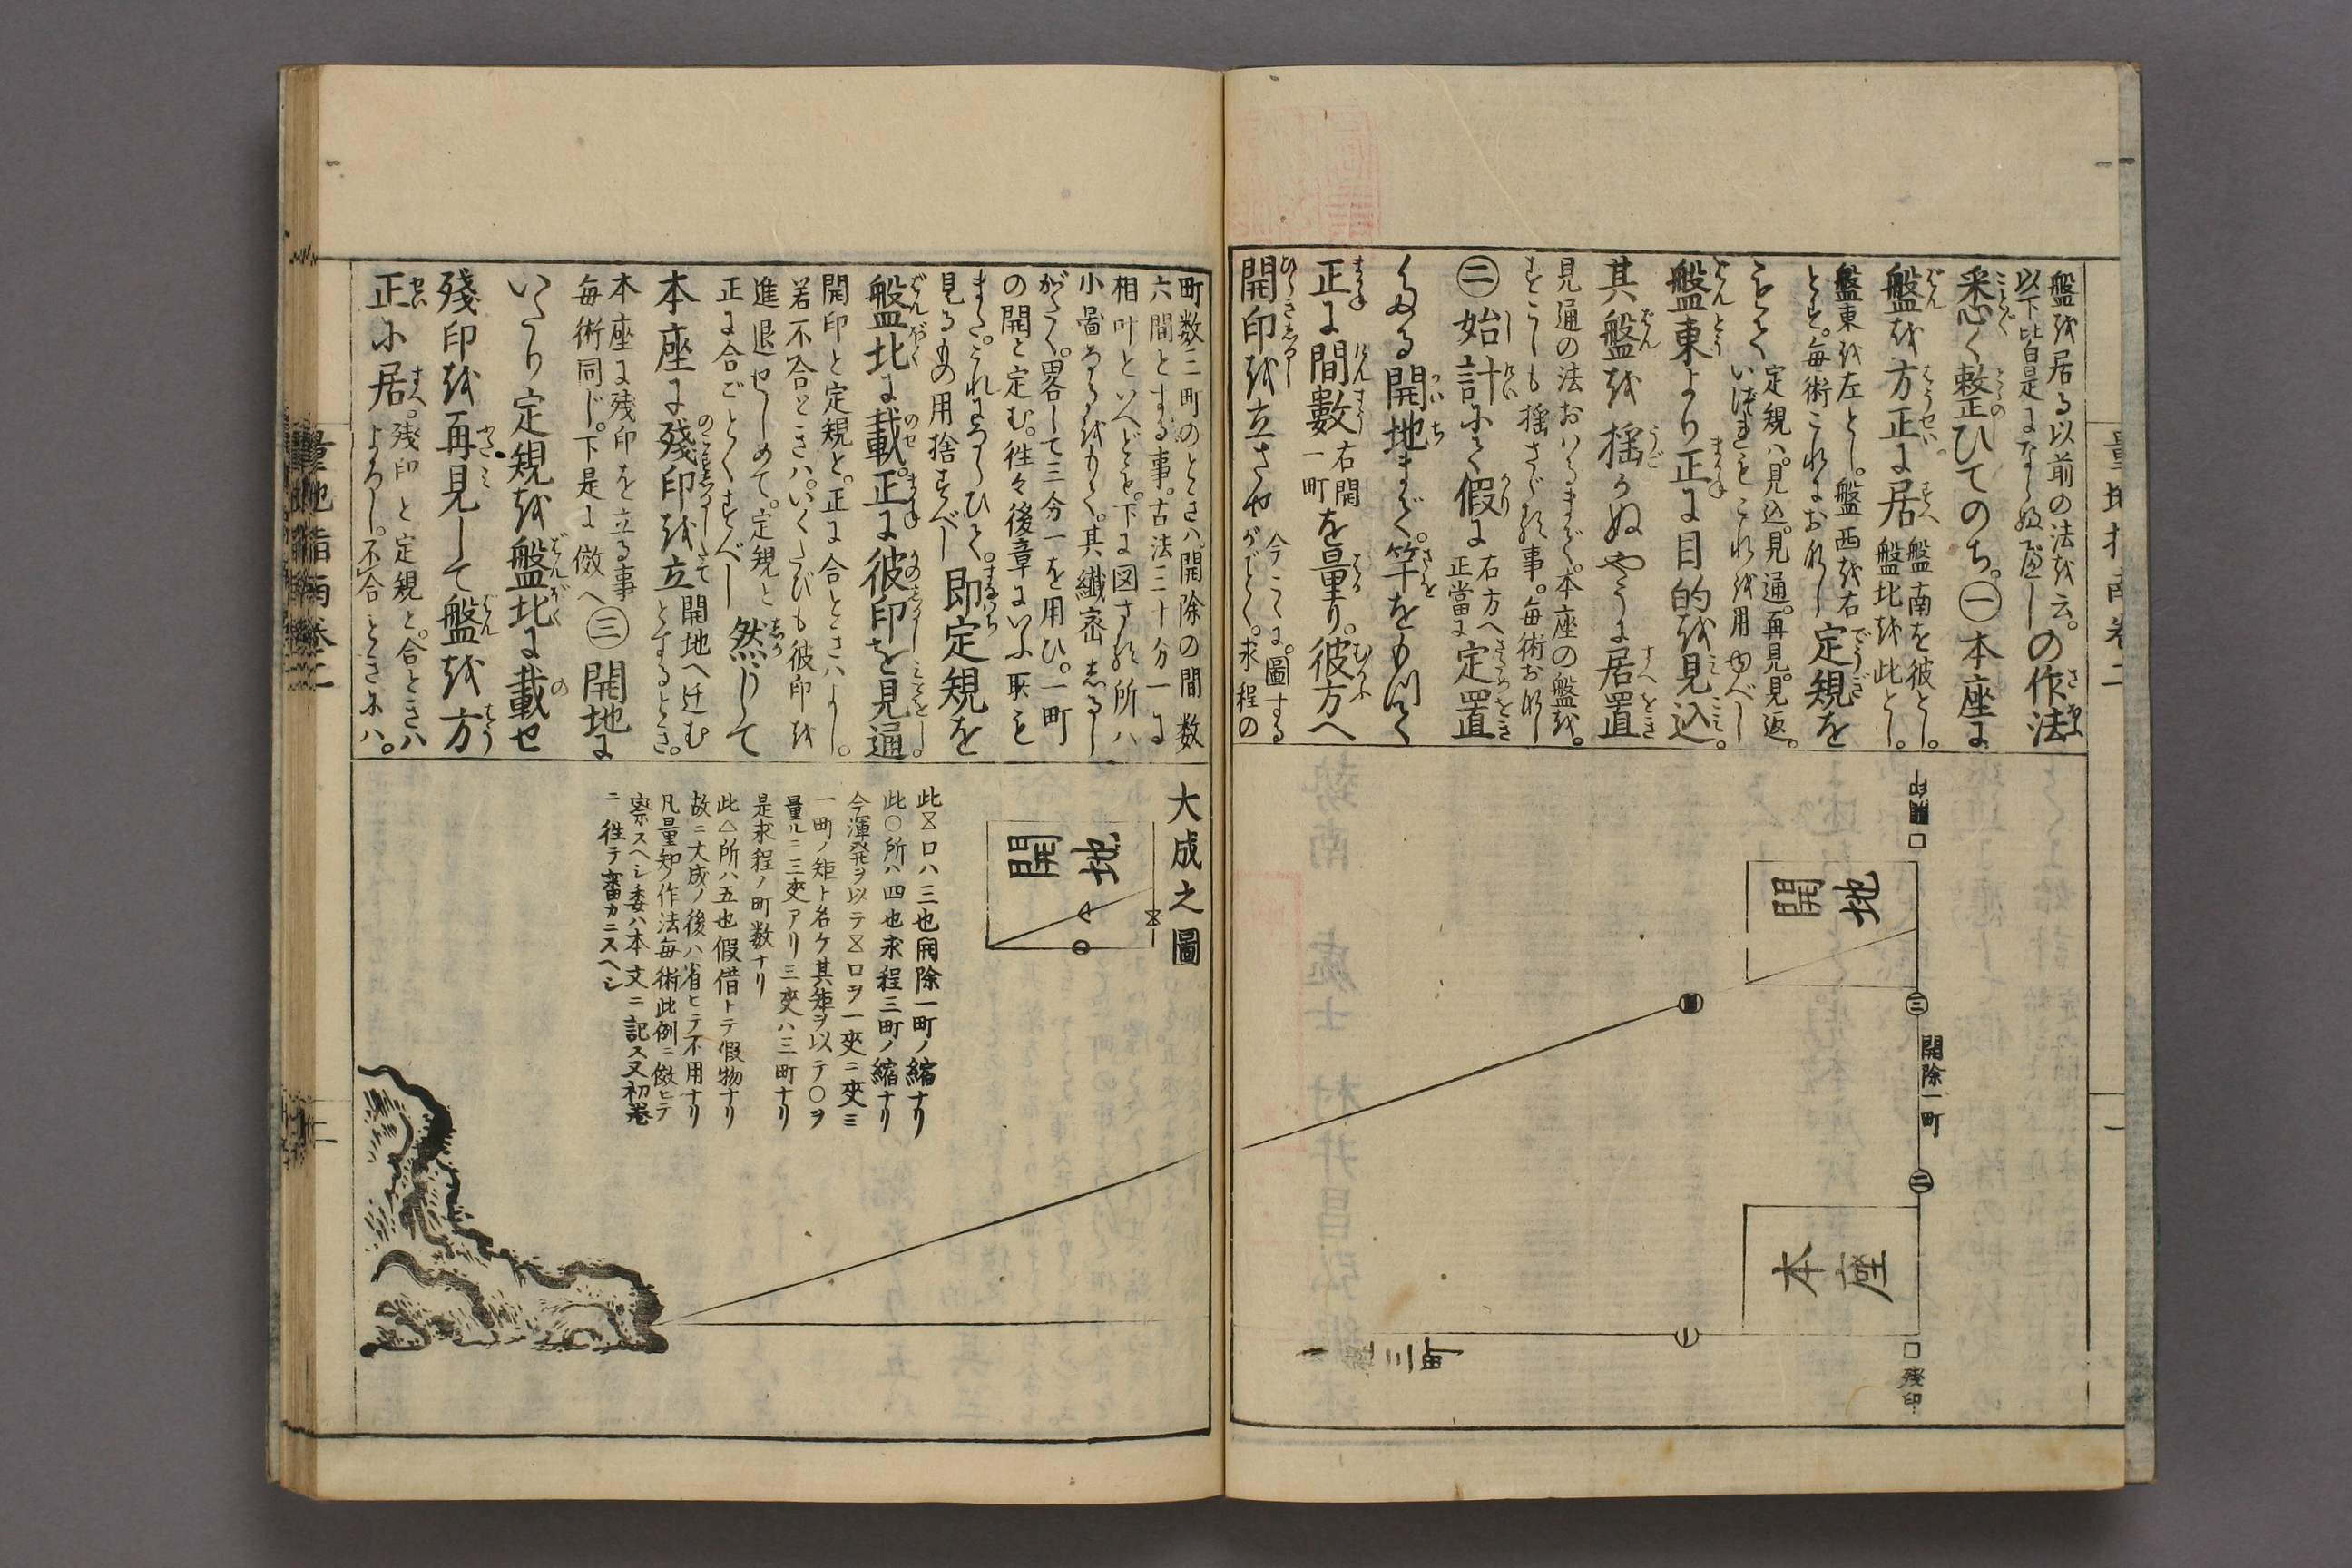 盤を居る以前の法を云。
以下皆是にならふべし
の作法
悉く整ひてのち。㊀本座に
盤を方正に居
盤南を彼とし。
盤北を此とし。
盤東を左とし。盤西を右
とす。毎術これにおなし
定規を
もつて
定規ハ。見込。見通。再見。見返。
いづれもこれを用ゆべし
盤東より正に目的を見込。
其盤を揺かぬやうに居置
見通の法おハるまで。本座の盤を。
すこしも揺さゞる事。毎術おなし
㊁始計にて假に
右方へ
正當に
定置
たる開地まで。竿をもつて
正に間數
右開
一町
を量り。彼方へ
開印を立さセ
今こゝに。圖する
がごとく。求程の
町数三町のときハ。開除の間数
六間とする事。古法三十分一に
相叶といへども。下に図する所ハ
小圖なるをもつて。其繊密しるし
がたく。畧して三分一を用ひ。一町
の開と定む。往々後章にいふ所も
また。これにならひて。
見るもの用捨すべし
即定規を
盤北に載。正に彼印を見通
開印と定規と。正に合ときハよし。
若不合ときハ。いくたびも彼印を
進退せしめて。定規と
正に合ごとくすべし
然して
本座に残印を立
開地へ迁む
とするとき。
本座に残印を立る事
毎術同じ。下是に傚へ
㊂開地に
いたり定規を盤北に載せ
殘印を再見して盤を方
正に居。
残印と定規と。合ときハ
よろし。不合ときにハ。
量地指南卷二
一
開印
開地
三
開除一町
二
本座
一
残印
程三町
大成之圖
開地
此⧖口ハ三也開除一町ノ縮ナリ
此〇所ハ四也求程三町ノ縮ナリ
今渾発ヲ以テ⧖口ヲ一夾ニ夾ミ
一町ノ矩ト名ケ其矩ヲ以テ〇ヲ
量ルニ三夾アリ三夾ハ三町ナリ
是求程ノ町数ナリ
此△所ハ五也假借トテ假物ナリ
故ニ大成ノ後ハ省ヒテ不用ナリ
凡量知ノ作法毎術此例ニ傚ヒテ
察スヘシ委ハ本文ニ記ス又初巻
ニ徃テ審カニスヘシ
量地指南卷二
二